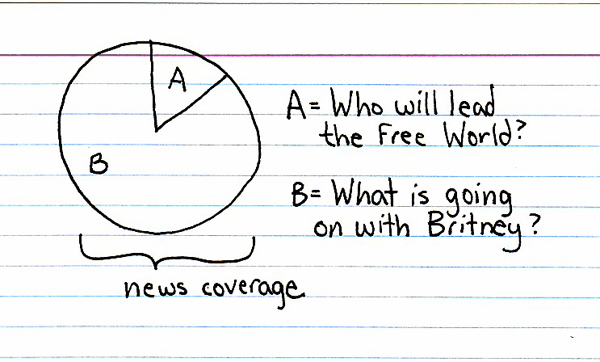 A
B
A = Who will lead
the Free World?
B = What is going
on with Britney?
news coverage